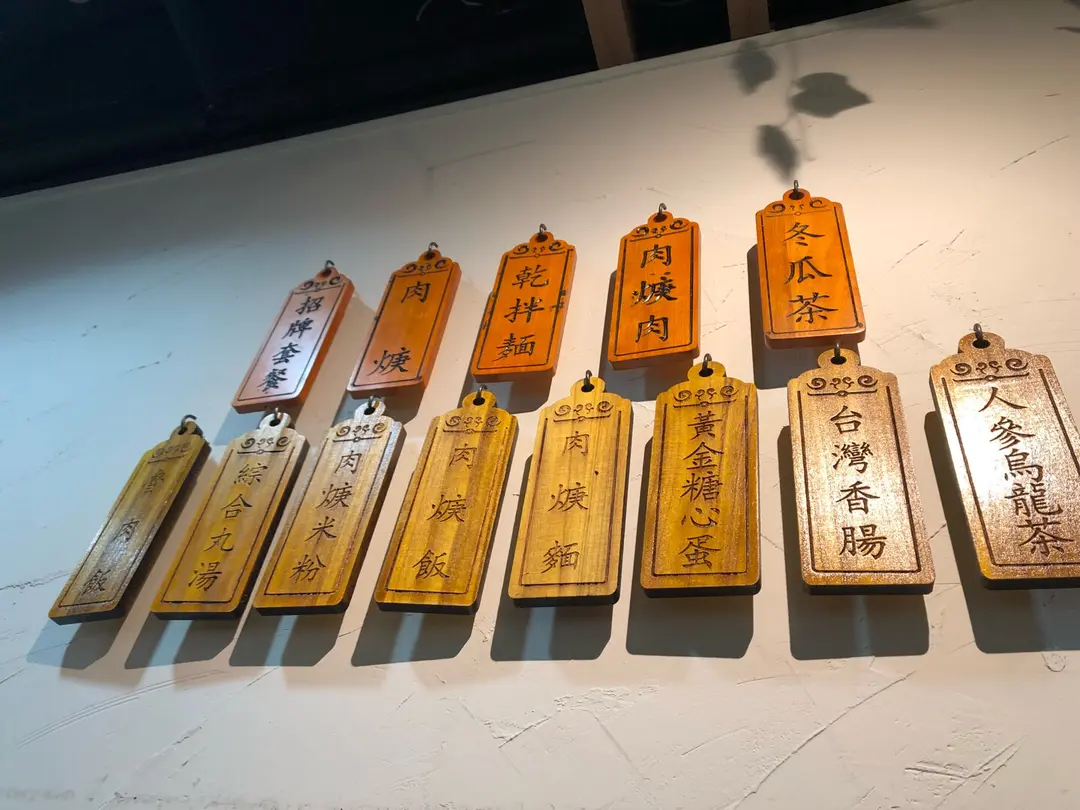 招牌套餐
肉焿
乾拌麵
肉焿肉
冬瓜茶
魯肉飯
綜合丸湯
肉焿米粉
肉焿飯
肉焿麵
黃金糖心蛋
台灣香腸
人參烏龍茶